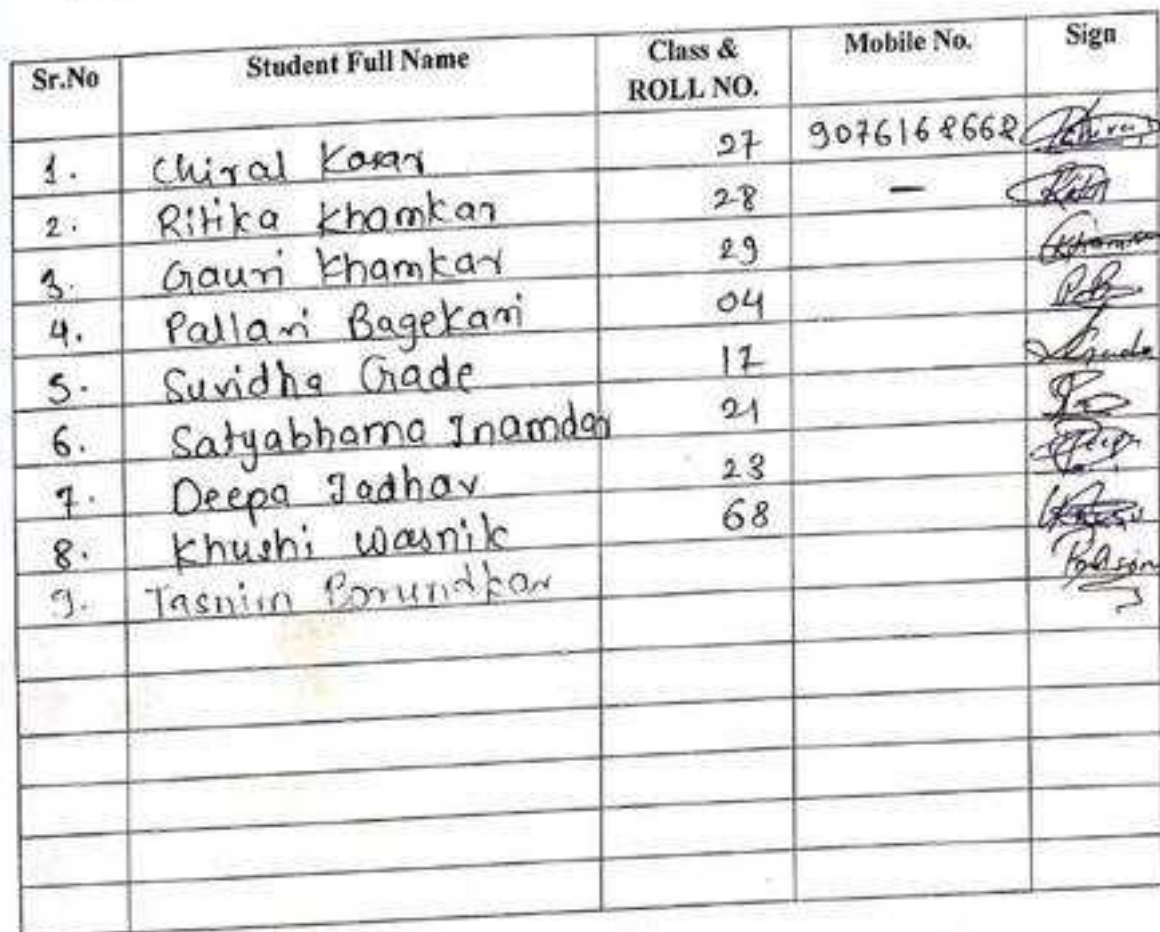 Sr.No Student Full Name Class & ROLL NO. Mobile No. Sign
1. Chiral Kasar 27 9076168668
2. Ritika Khamkar 28 —
3. Gauri Khamkar 29
4. Pallavi Bagekari 04
5. Suvidha Gade 17
6. Satyabhama Inamdar 21
7. Deepa Jadhav 23
8. Khushi Wasnik 68
9. Tasnim